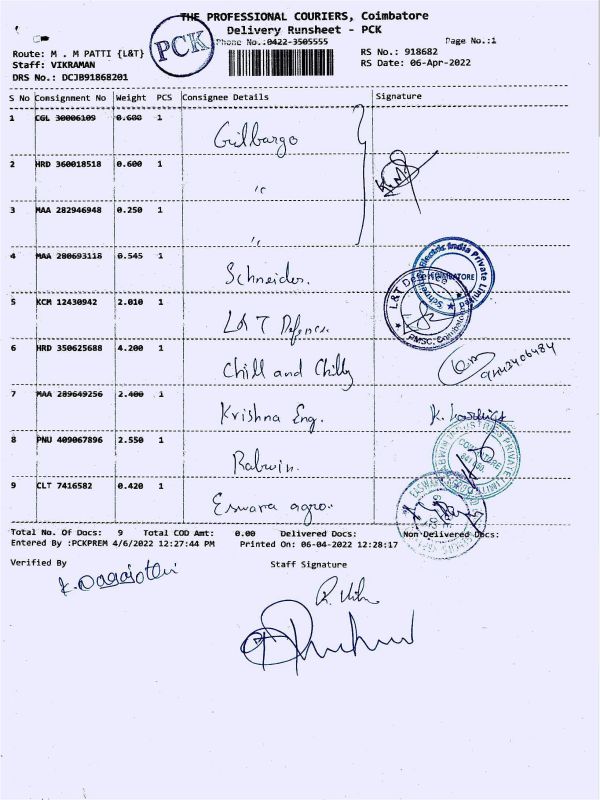 THE PROFESSIONAL COURIERS, Coimbatore
Delivery Runsheet - PCK
PCK
Phone No.:0422-3505555
Page No.:1
Route: M . M PATTI {L&T}
RS No.: 918682
Staff: VIKRAMAN
RS Date: 06-Apr-2022
DRS No.: DCJB91868201
S No Consignment No Weight PCS Consignee Details Signature
1 CGL 30006109 0.600 1 Gilbargo
2 HRD 360018518 0.600 1 "
3 MAA 282946948 0.250 1 "
4 MAA 280693118 0.545 1 Schneider.
5 KCM 12430942 2.010 1 L&T Defence
6 HRD 350625688 4.200 1 Chill and Chilly
7 MAA 289649256 2.400 1 Krishna Eng.
8 PNU 409067896 2.550 1 Rabwin.
9 CLT 7416582 0.420 1 Eswara agro.
Schneider Electric India Private Limited
COIMBATORE
L&T Defence
PMSC, Coimbatore
Total No. Of Docs: 9 Total COD Amt: 0.00 Delivered Docs: Non Delivered Docs:
Entered By :PCKPREM 4/6/2022 12:27:44 PM Printed On: 06-04-2022 12:28:17
Verified By
Staff Signature